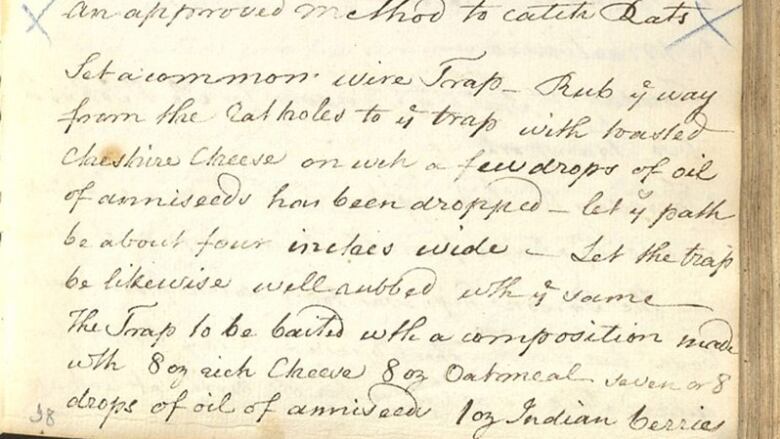 An approved method to catch Rats
Set a common wire Trap - Rub ye way
from the Ratholes to ye trap with toasted
Cheshire Cheese on wch a few drops of oil
of anniseeds has been dropped - let ye path
be about four inches wide - Let the trap
be likewise well rubbed wth ye same
The Trap to be baited wth a composition made
wth 8 oz rich Cheese 8 oz Oatmeal seven or 8
drops of oil of anniseed 1 oz Indian berries
98